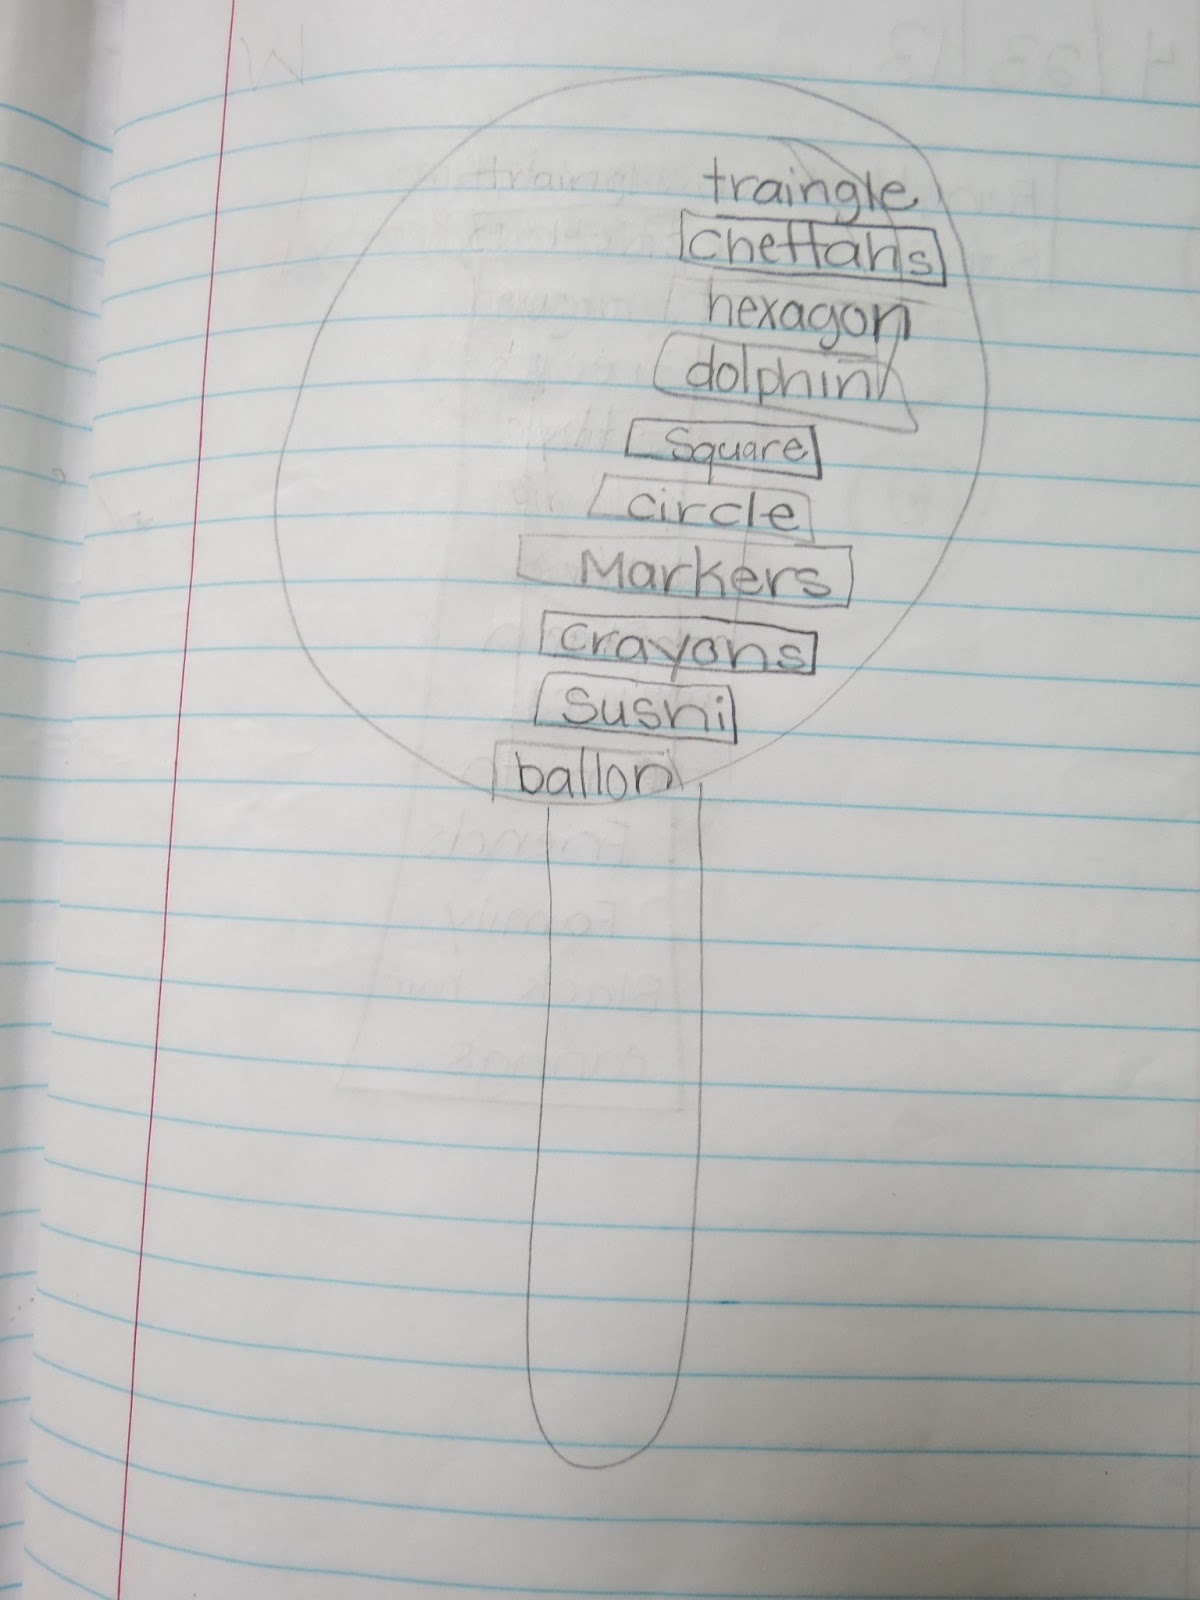 traingle
chettahs
hexagon
dolphin
Square
circle
Markers
crayons
Sushi
ballon